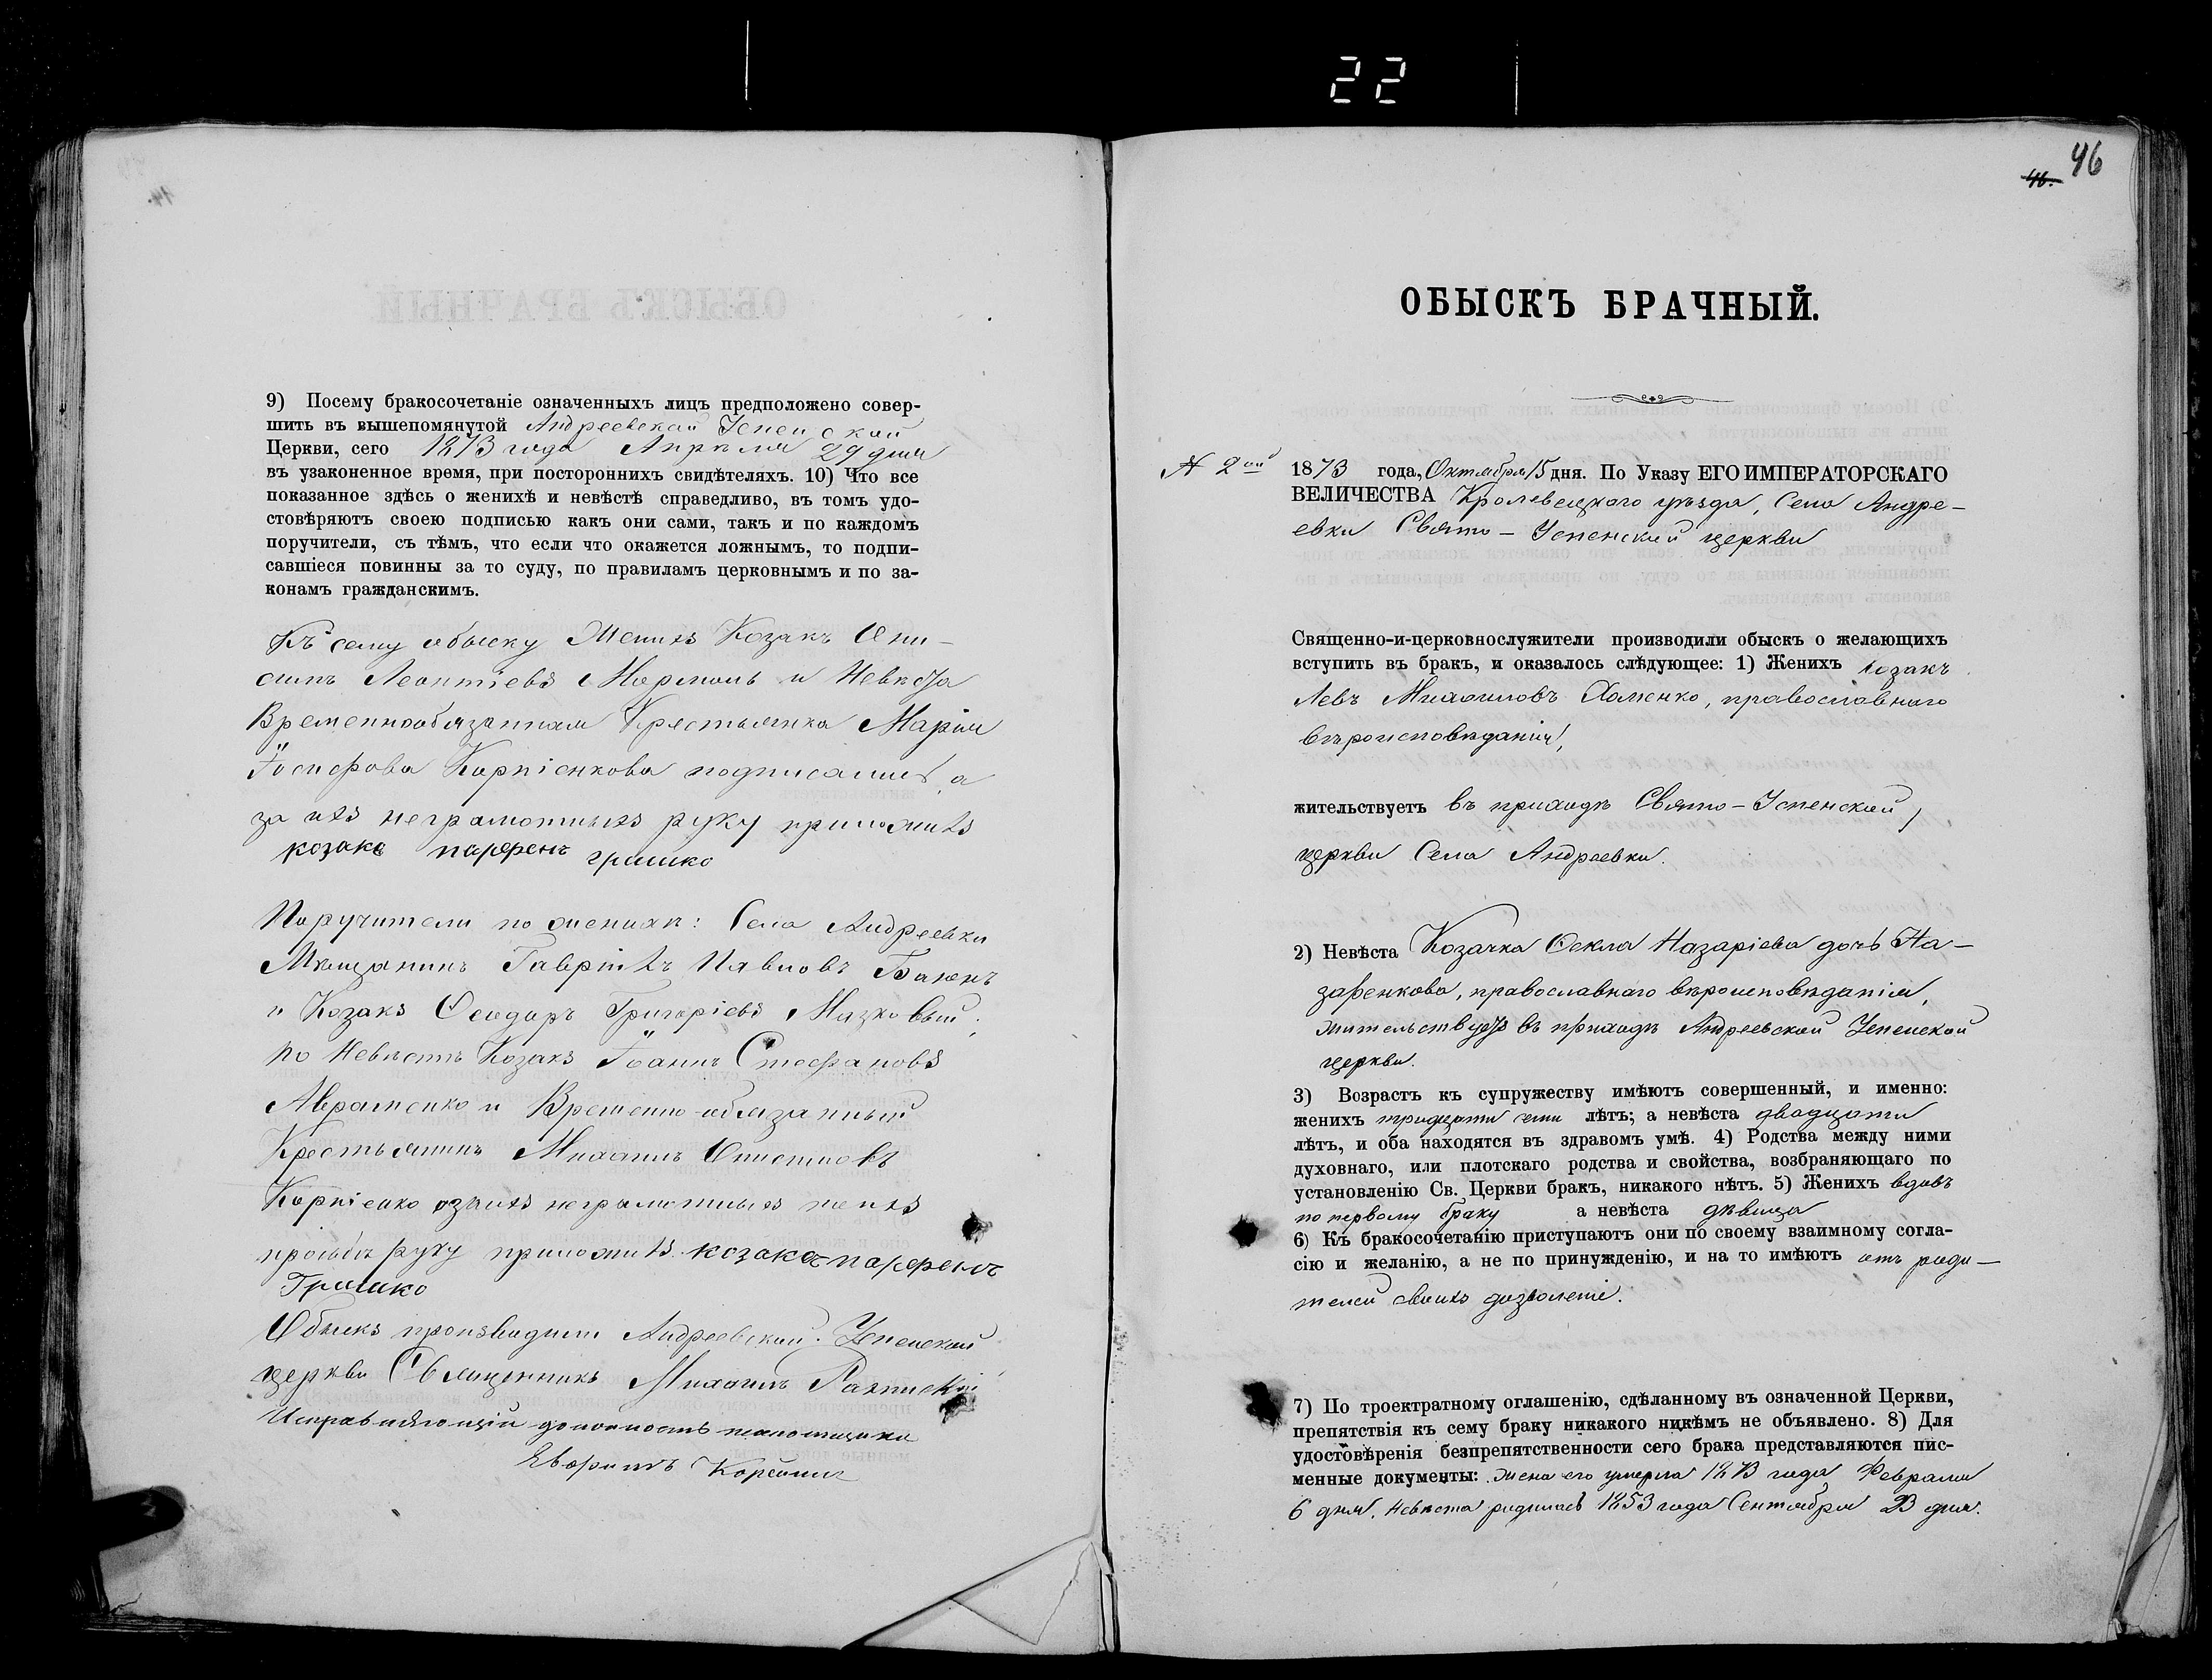 22
9) Посему бракосочетаніе означенныхъ лицъ предположено совер-
шить въ вышепомянутой Андреевской Успенской
Церкви, сего 1873 года Апреля 29 дня
въ узаконенное время, при постороннихъ свидѣтеляхъ. 10) Что все
показанное здѣсь о женихѣ и невѣстѣ справедливо, въ томъ удо-
стовѣряютъ своею подписью какъ они сами, такъ и по каждомъ
поручители, съ тѣмъ, что если что окажется ложнымъ, то подпи-
савшіеся повинны за то суду, по правиламъ церковнымъ и по за-
конамъ гражданскимъ.
Къ сему обыску Женихъ Козакъ Они-
симъ Леонтіевъ и Невѣста
Временнообязанная Крестьянка Марія
Іосифова Карпіенкова подписались, а
за ихъ неграмотныхъ руку приложилъ
козакъ парфенъ гришко
Поручители по женихѣ: Села Андреевки
Мѣщанинъ Гавріилъ Павловъ
и Козакъ Ѳеодоръ Григоріевъ
по Невѣстѣ Козакъ Іоаннъ Стефановъ
Авраменко и Временно-обязанный
Крестьянинъ Михаилъ
Карпіенко
просьбѣ руку приложилъ козакъ парфенъ
Гришко
Обыскъ производили Андреевской Успенской
церкви Священникъ Михаилъ
Исправляющій должность
46
46.
ОБЫСКЪ БРАЧНЫЙ.
№ 2ой
1873 года, Октября 15 дня. По Указу ЕГО ИМПЕРАТОРСКАГО
ВЕЛИЧЕСТВА Кролевецкаго уѣзда, Села Андре-
евки Свято-Успенской церкви
Священно-и-церковнослужители производили обыскъ о желающихъ
вступить въ бракъ, и оказалось слѣдующее: 1) Женихъ козакъ
Левъ Михаиловъ Хоменко, православнаго
вѣроисповѣданія,
жительствуетъ въ приходѣ Свято-Успенской
церкви Села Андреевки.
2) Невѣста Козачка Ѳекла Назаріева дочь На-
заренкова, православнаго вѣроисповѣданія,
жительствуетъ въ приходѣ Андреевской Успенской
церкви.
3) Возрастъ къ супружеству имѣютъ совершенный, и именно:
женихъ тридцати семи лѣтъ; а невѣста двадцати
лѣтъ, и оба находятся въ здравомъ умѣ. 4) Родства между ними
духовнаго, или плотскаго родства и свойства, возбраняющаго по
установленію Св. Церкви бракъ, никакого нѣтъ. 5) Женихъ вдовъ
по первому браку а невѣста дѣвица
6) Къ бракосочетанію приступаютъ они по своему взаимному согла-
сію и желанію, а не по принужденію, и на то имѣютъ отъ роди-
телей своихъ дозволеніе.
7) По троектратному оглашенію, сдѣланному въ означенной Церкви,
препятствія къ сему браку никакого никѣмъ не объявлено. 8) Для
удостовѣренія безпрепятственности сего брака представляются пис-
менные документы: жена его умерла 1873 года Февраля
6 дня. Невѣста родилась 1853 года Сентября 23 дня.